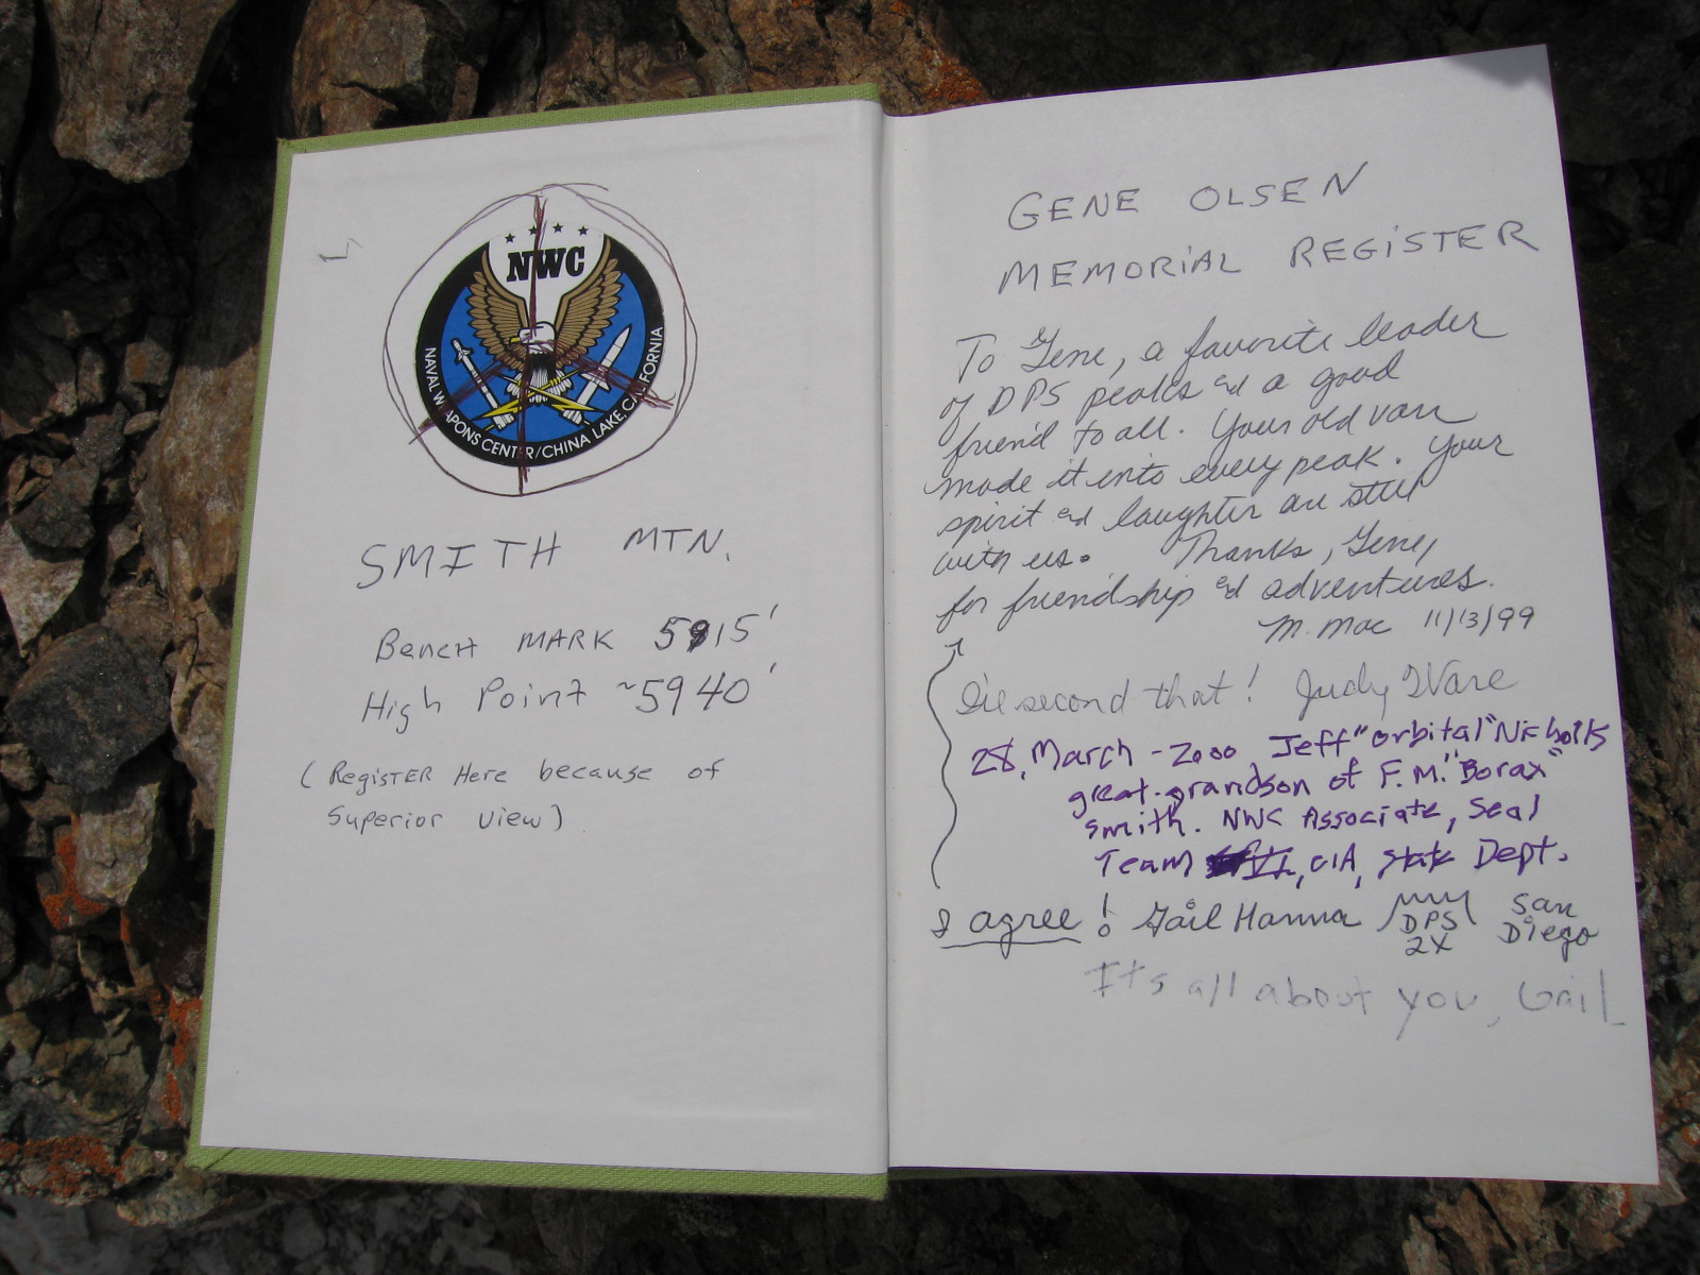 NWC
NAVAL WEAPONS CENTER/CHINA LAKE, CALIFORNIA
SMITH MTN.
Bench MARK 5915'
High Point ~5940'
(Register Here because of
Superior view)
GENE OLSEN
MEMORIAL REGISTER
To Gene, a favorite leader
of DPS peaks and a good
friend to all. Your old van
made it into every peak. Your
spirit and laughter are still
with us. Thanks, Gene,
for friendship and adventures.
M. Mac 11/13/99
I'll second that! Judy Ware
28, March - 2000 Jeff "orbital" Nicholls
great-grandson of F.M. "Borax"
Smith. NWC Associate, Seal
Team VI, CIA, State Dept.
I agree! Gail Hanna DPS 2X San Diego
It's all about you, Gail